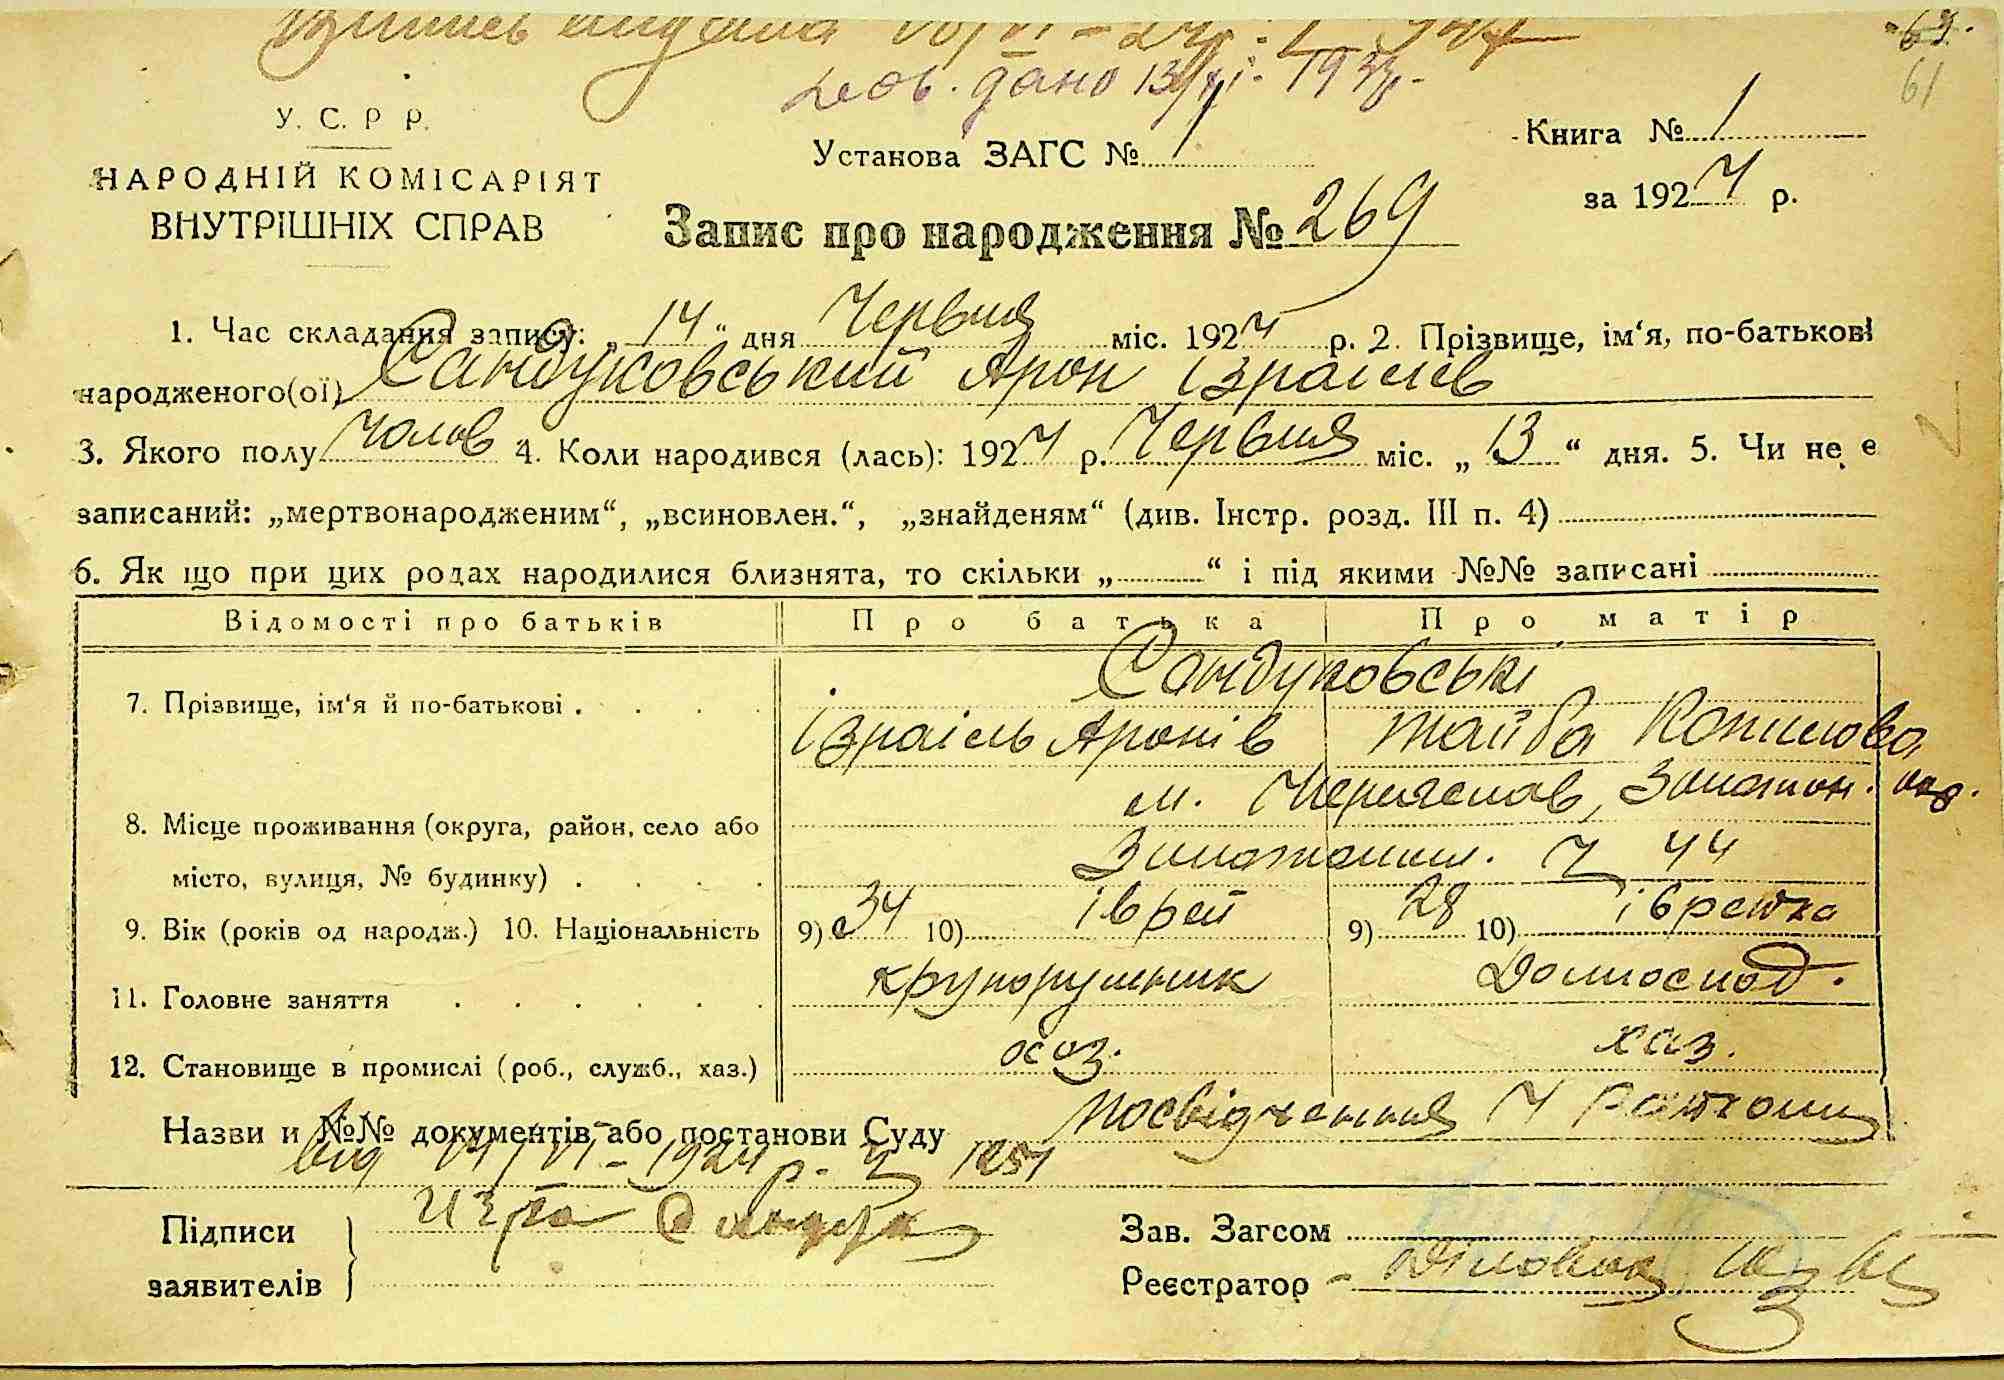 -63.-
61
дов. дано 13/VI. 1933.
У. С. Р Р.
НАРОДНІЙ КОМІСАРІЯТ
ВНУТРІШНІХ СПРАВ
Установа ЗАГС № 1
Книга № 1
за 1924 р.
Запис про народження № 269
1. Час складання запису: „14“ дня Червня міс. 1924 р. 2. Прізвище, ім‘я, по-батькові
народженого(ої) Сандуковський Арон Ізраілев
3. Якого полу чолов 4. Коли народився (лась): 1924 р. Червня міс. „13“ дня. 5. Чи не є
записаний: „мертвонародженим“, „всиновлен.“, „знайденям“ (див. Інстр. розд. III п. 4)
6. Як що при цих родах народилися близнята, то скільки „ “ і під якими №№ записані
Відомості про батьків Про батька Про матір
Сандуковські
7. Прізвище, ім‘я й по-батькові . . . . Ізраіль Аронів Тайба
м. Переяслав, Золотон. окр.
8. Місце проживання (округа, район, село або
місто, вулиця, № будинку) . . . . Золотоніш. 44
9. Вік (років од народж.) 10. Національність 9) 34 10) іврей 9) 28 10) іврейка
11. Головне заняття . . . . . . крупорушник Домоспод.
12. Становище в промислі (роб., служб., хаз.) хаз. хаз.
Назви и №№ документів або постанови Суду Посвідчення
від 14/VI-1924 р.
Підписи
заявителів
Зав. Загсом
Реєстратор